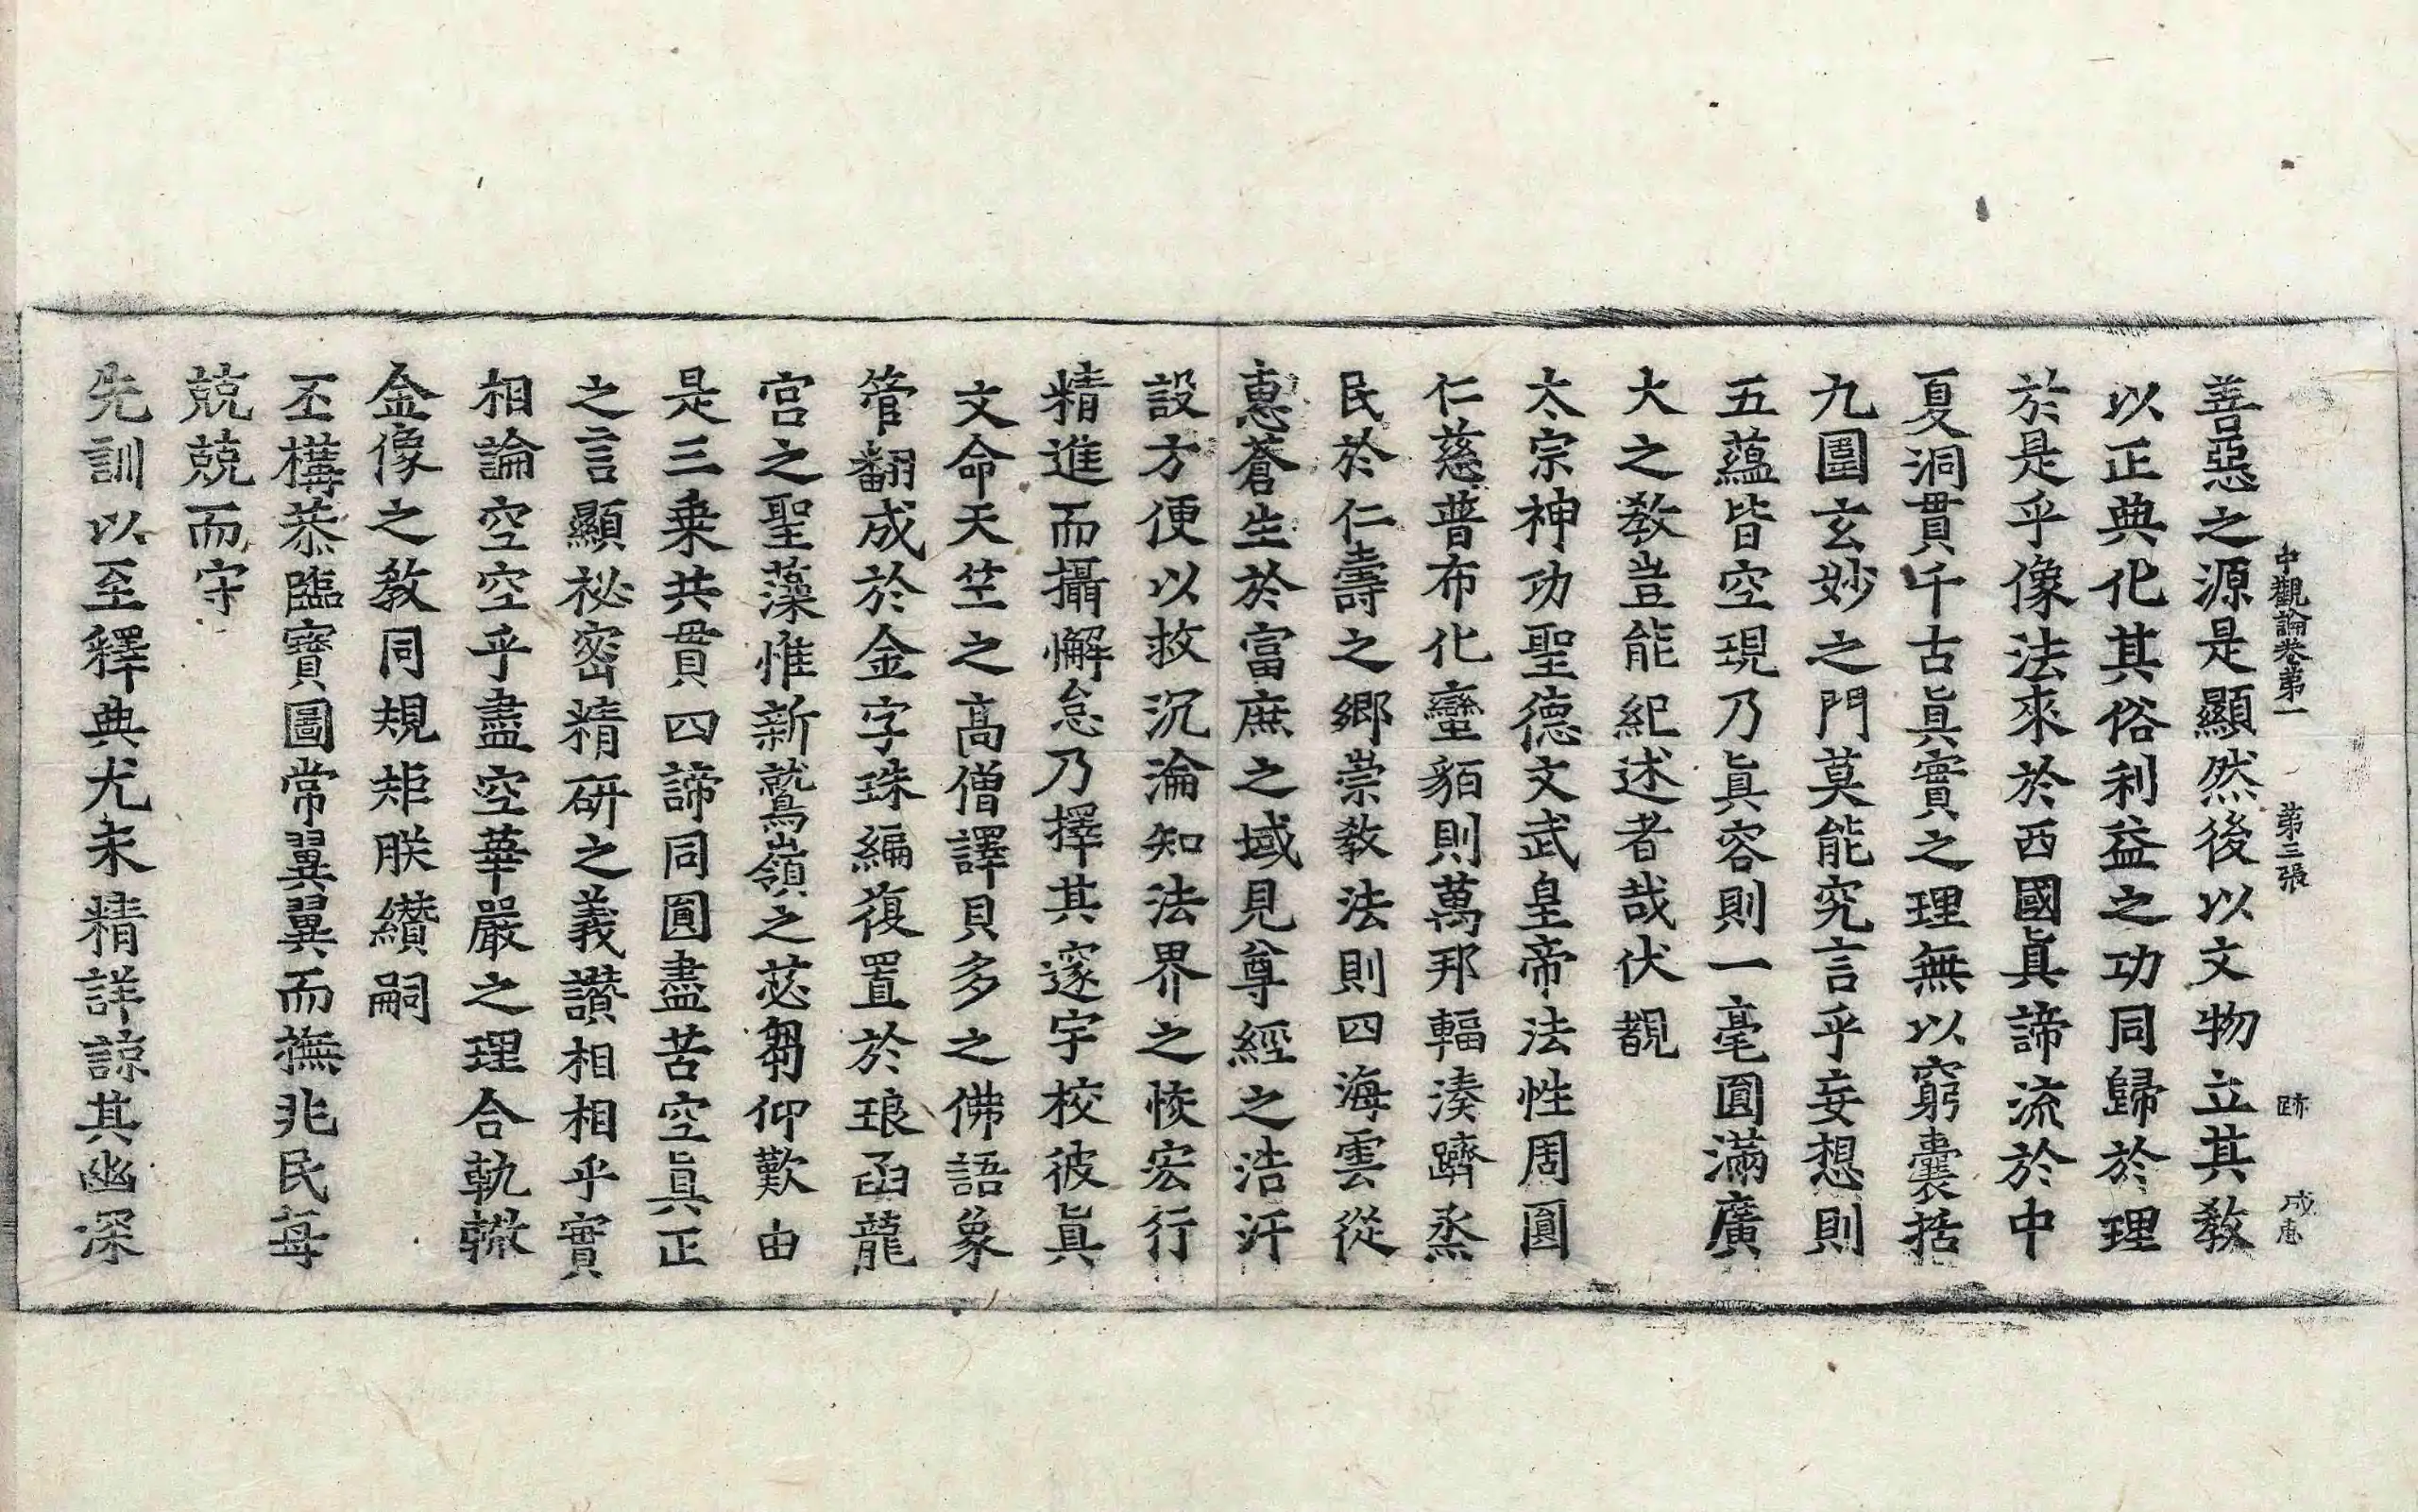 中觀論卷第一 第三張 跡 成惠
善惡之源是顯然後以文物立其敎
以正典化其俗利益之功同歸於理
於是乎像法來於西國眞諦流於中
夏洞貫千古眞實之理無以窮囊括
九圍玄妙之門莫能究言乎妄想則
五蘊皆空現乃眞容則一毫圓滿廣
大之敎豈能紀述者哉伏覩
太宗神功聖德文武皇帝法性周圓
仁慈普布化蠻貊則萬邦輻湊躋烝
民於仁壽之鄉崇敎法則四海雲從
惠蒼生於富庶之域見尊經之浩汗
設方便以救沉淪知法界之恢宏行
精進而攝懈怠乃擇其邃宇校彼眞
文命天竺之高僧譯貝多之佛語象
管翻成於金字珠編復置於琅函龍
宮之聖藻惟新鷲嶺之苾蒭仰歎由
是三乗共貫四諦同圓盡苦空眞正
之言顯祕密精研之義讚相相乎實
相論空空乎盡空華嚴之理合軌轍
金像之敎同規矩朕纘嗣
丕構恭臨寶圖常翼翼而撫兆民每
兢兢而守
先訓以至釋典尤未精詳諒其幽深